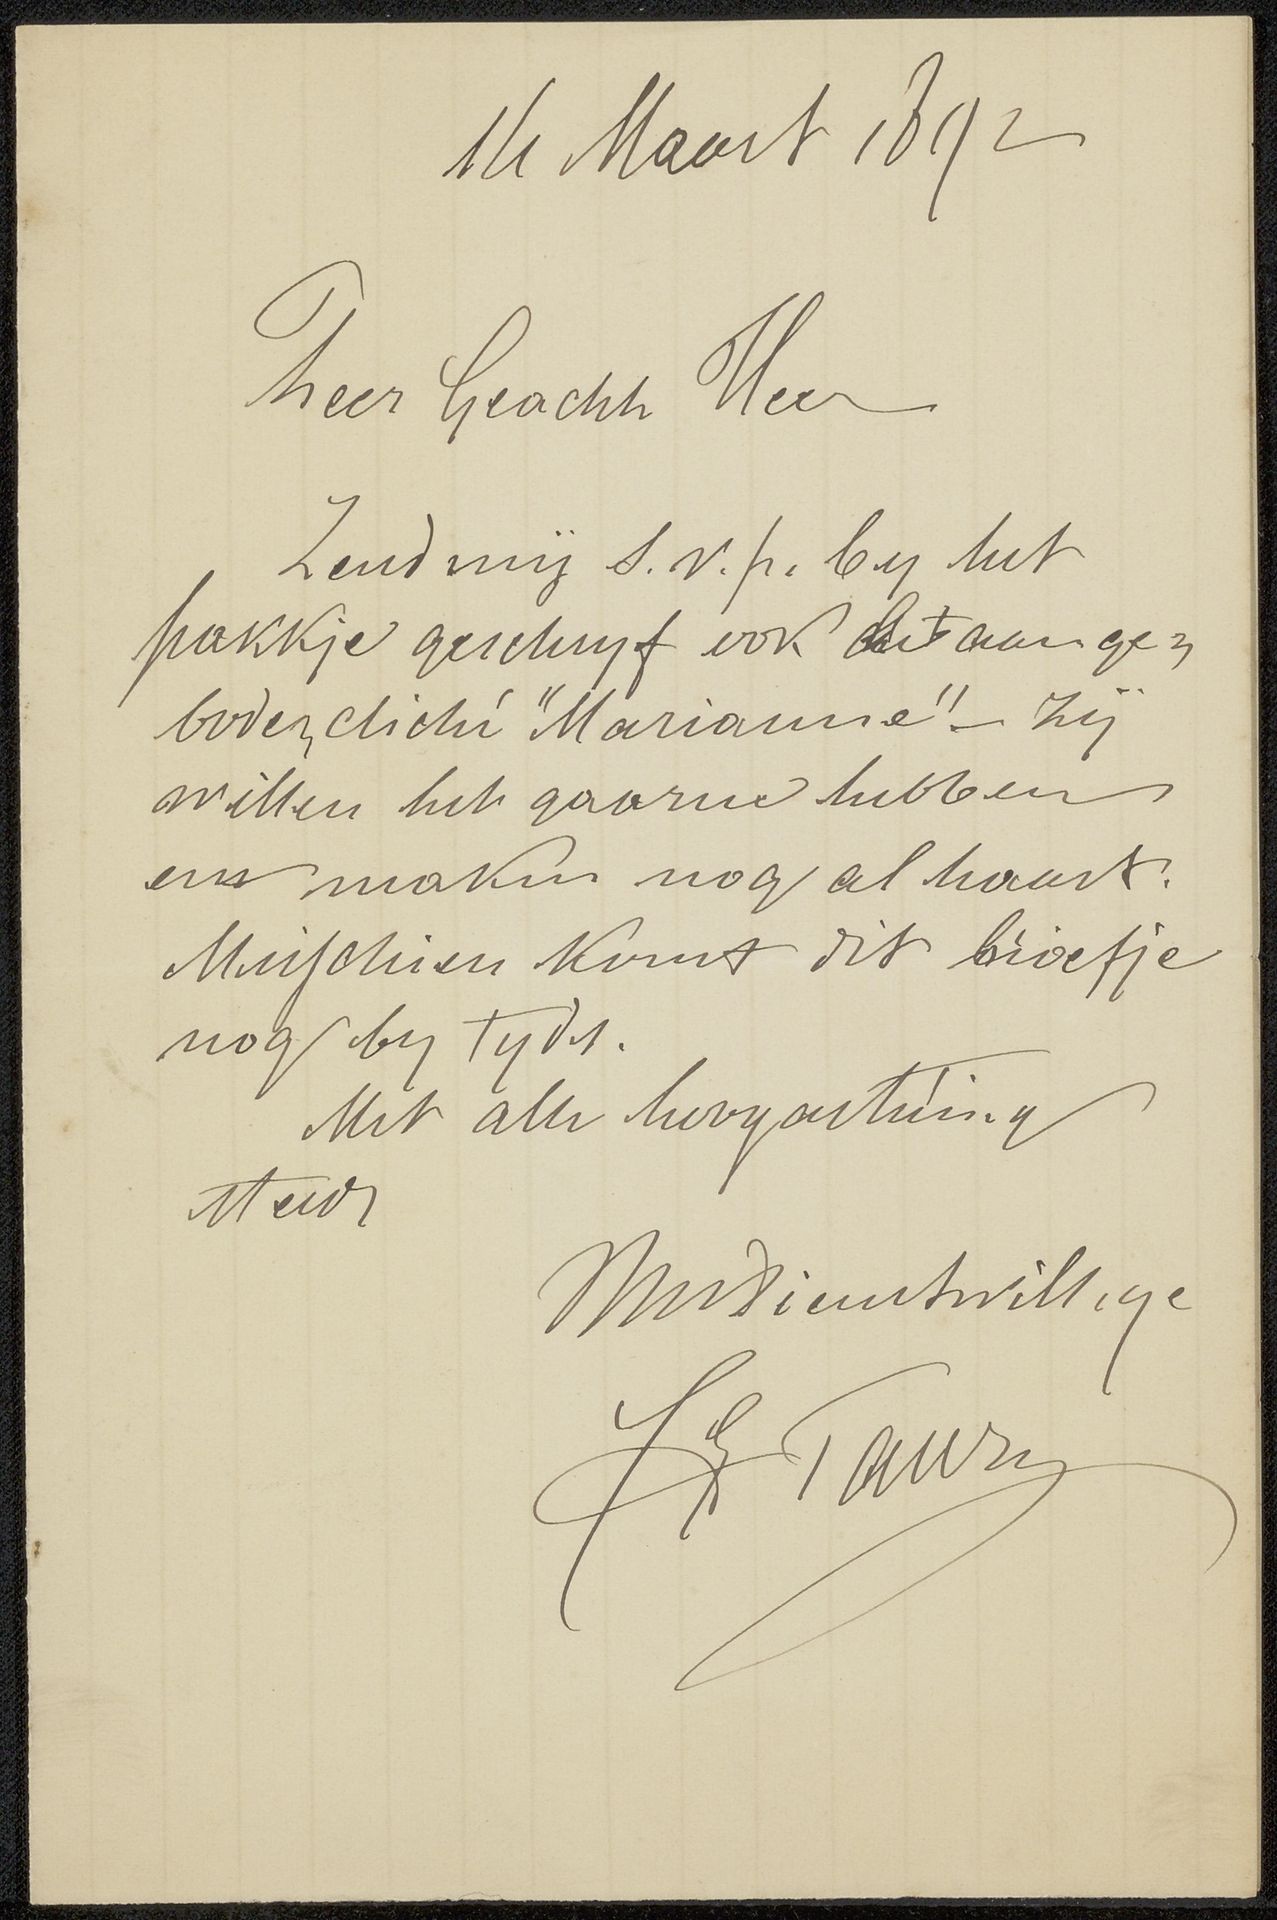 14 Maart 1892
Zeer Geachte Heer
Zend mij s.v.p. by het
pakkje geschryf ook het aange=
boden cliché "Marianne" – Zij
willen het gaarne hebben
en maken nog al haast.
Misschien komt dit briefje
nog by tyds.
Met alle hoogachting
steeds
Uw dienstwillige